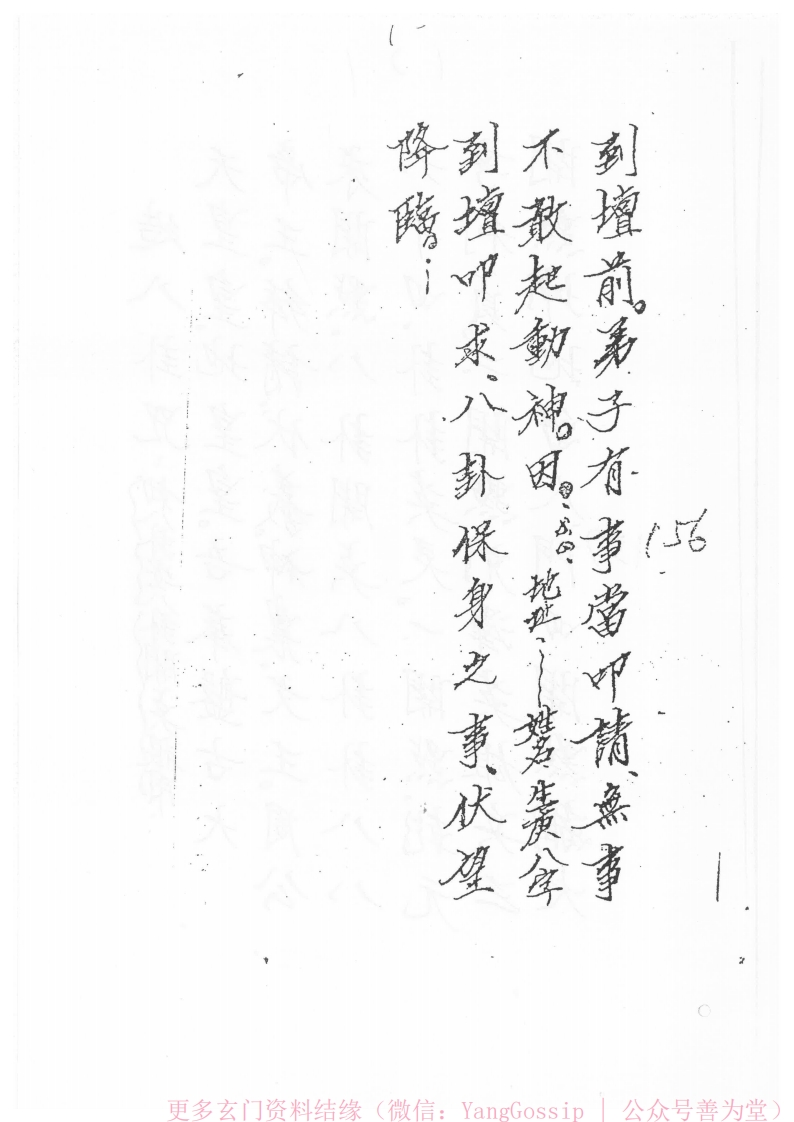 到壇前。弟子有事當叩請、無事
不敢起動神。因。地址姓名生庚八字
到壇叩求、八卦保身之事、伏望
降臨。
156
更多玄门资料结缘（微信：YangGossip | 公众号善为堂）